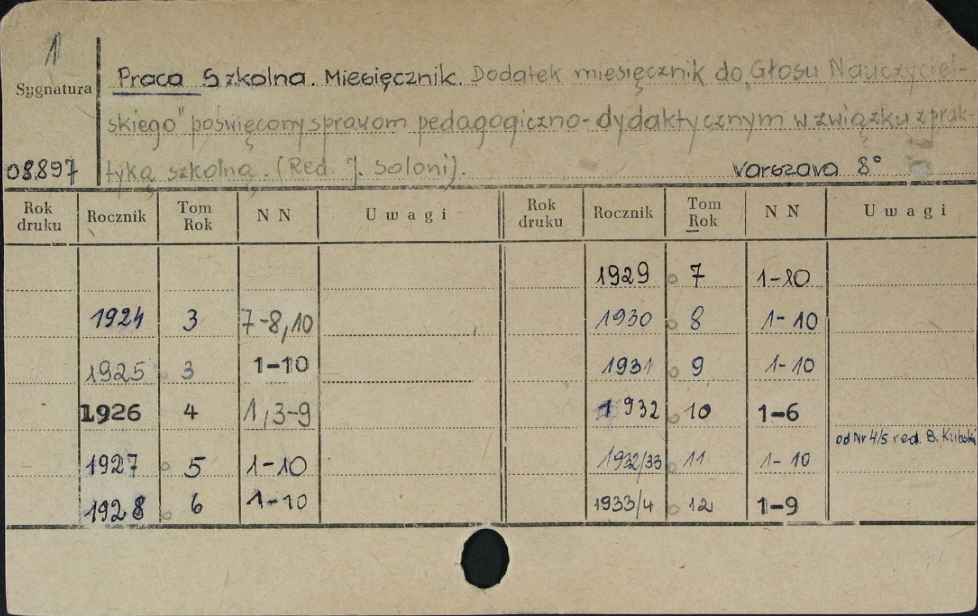 1
Sygnatura
08.897
Praca Szkolna. Miesięcznik. Dodatek miesięcznik do „Głosu Nauczyciel-
skiego" poświęcony sprawom pedagogiczno-dydaktycznym w związku z prak-
tyką szkolną. (Red. J. Soloni). Warszawa 8°
Rok druku Rocznik Tom Rok NN Uwagi Rok druku Rocznik Tom Rok NN Uwagi
1929 7 1-10
1924 3 7-8,10 1930 8 1-10
1925 3 1-10 1931 9 1-10
1926 4 1,3-9 1932 10 1-6
od Nr 4/5 red. B.
1927 5 1-10 1932/33 11 1-10
1928 6 1-10 1933/4 12 1-9